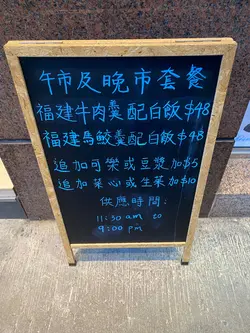 午市及晚市套餐
福建牛肉羹配白飯$48
福建馬鮫羹配白飯$48
追加可樂或豆漿加$5
追加菜心或生菜加$10
供應時間:
11:30 am to
9:00 pm